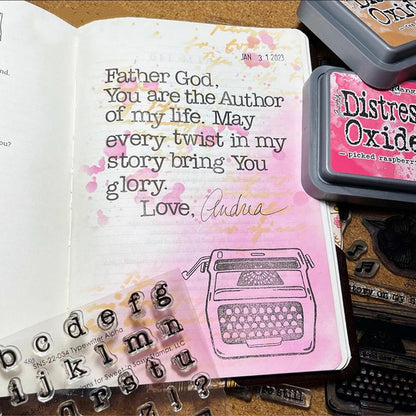 JAN 31 2023
Father God,
You are the Author
of my life. May
every twist in my
story bring You
glory.
Love, Andrea
Distress
Oxide
picked raspberry
Oxide
nd.
ou?
486 SNS-22-034 Typewriter Alpha
b c d e f g
i j k l m n
r s t u
! ?